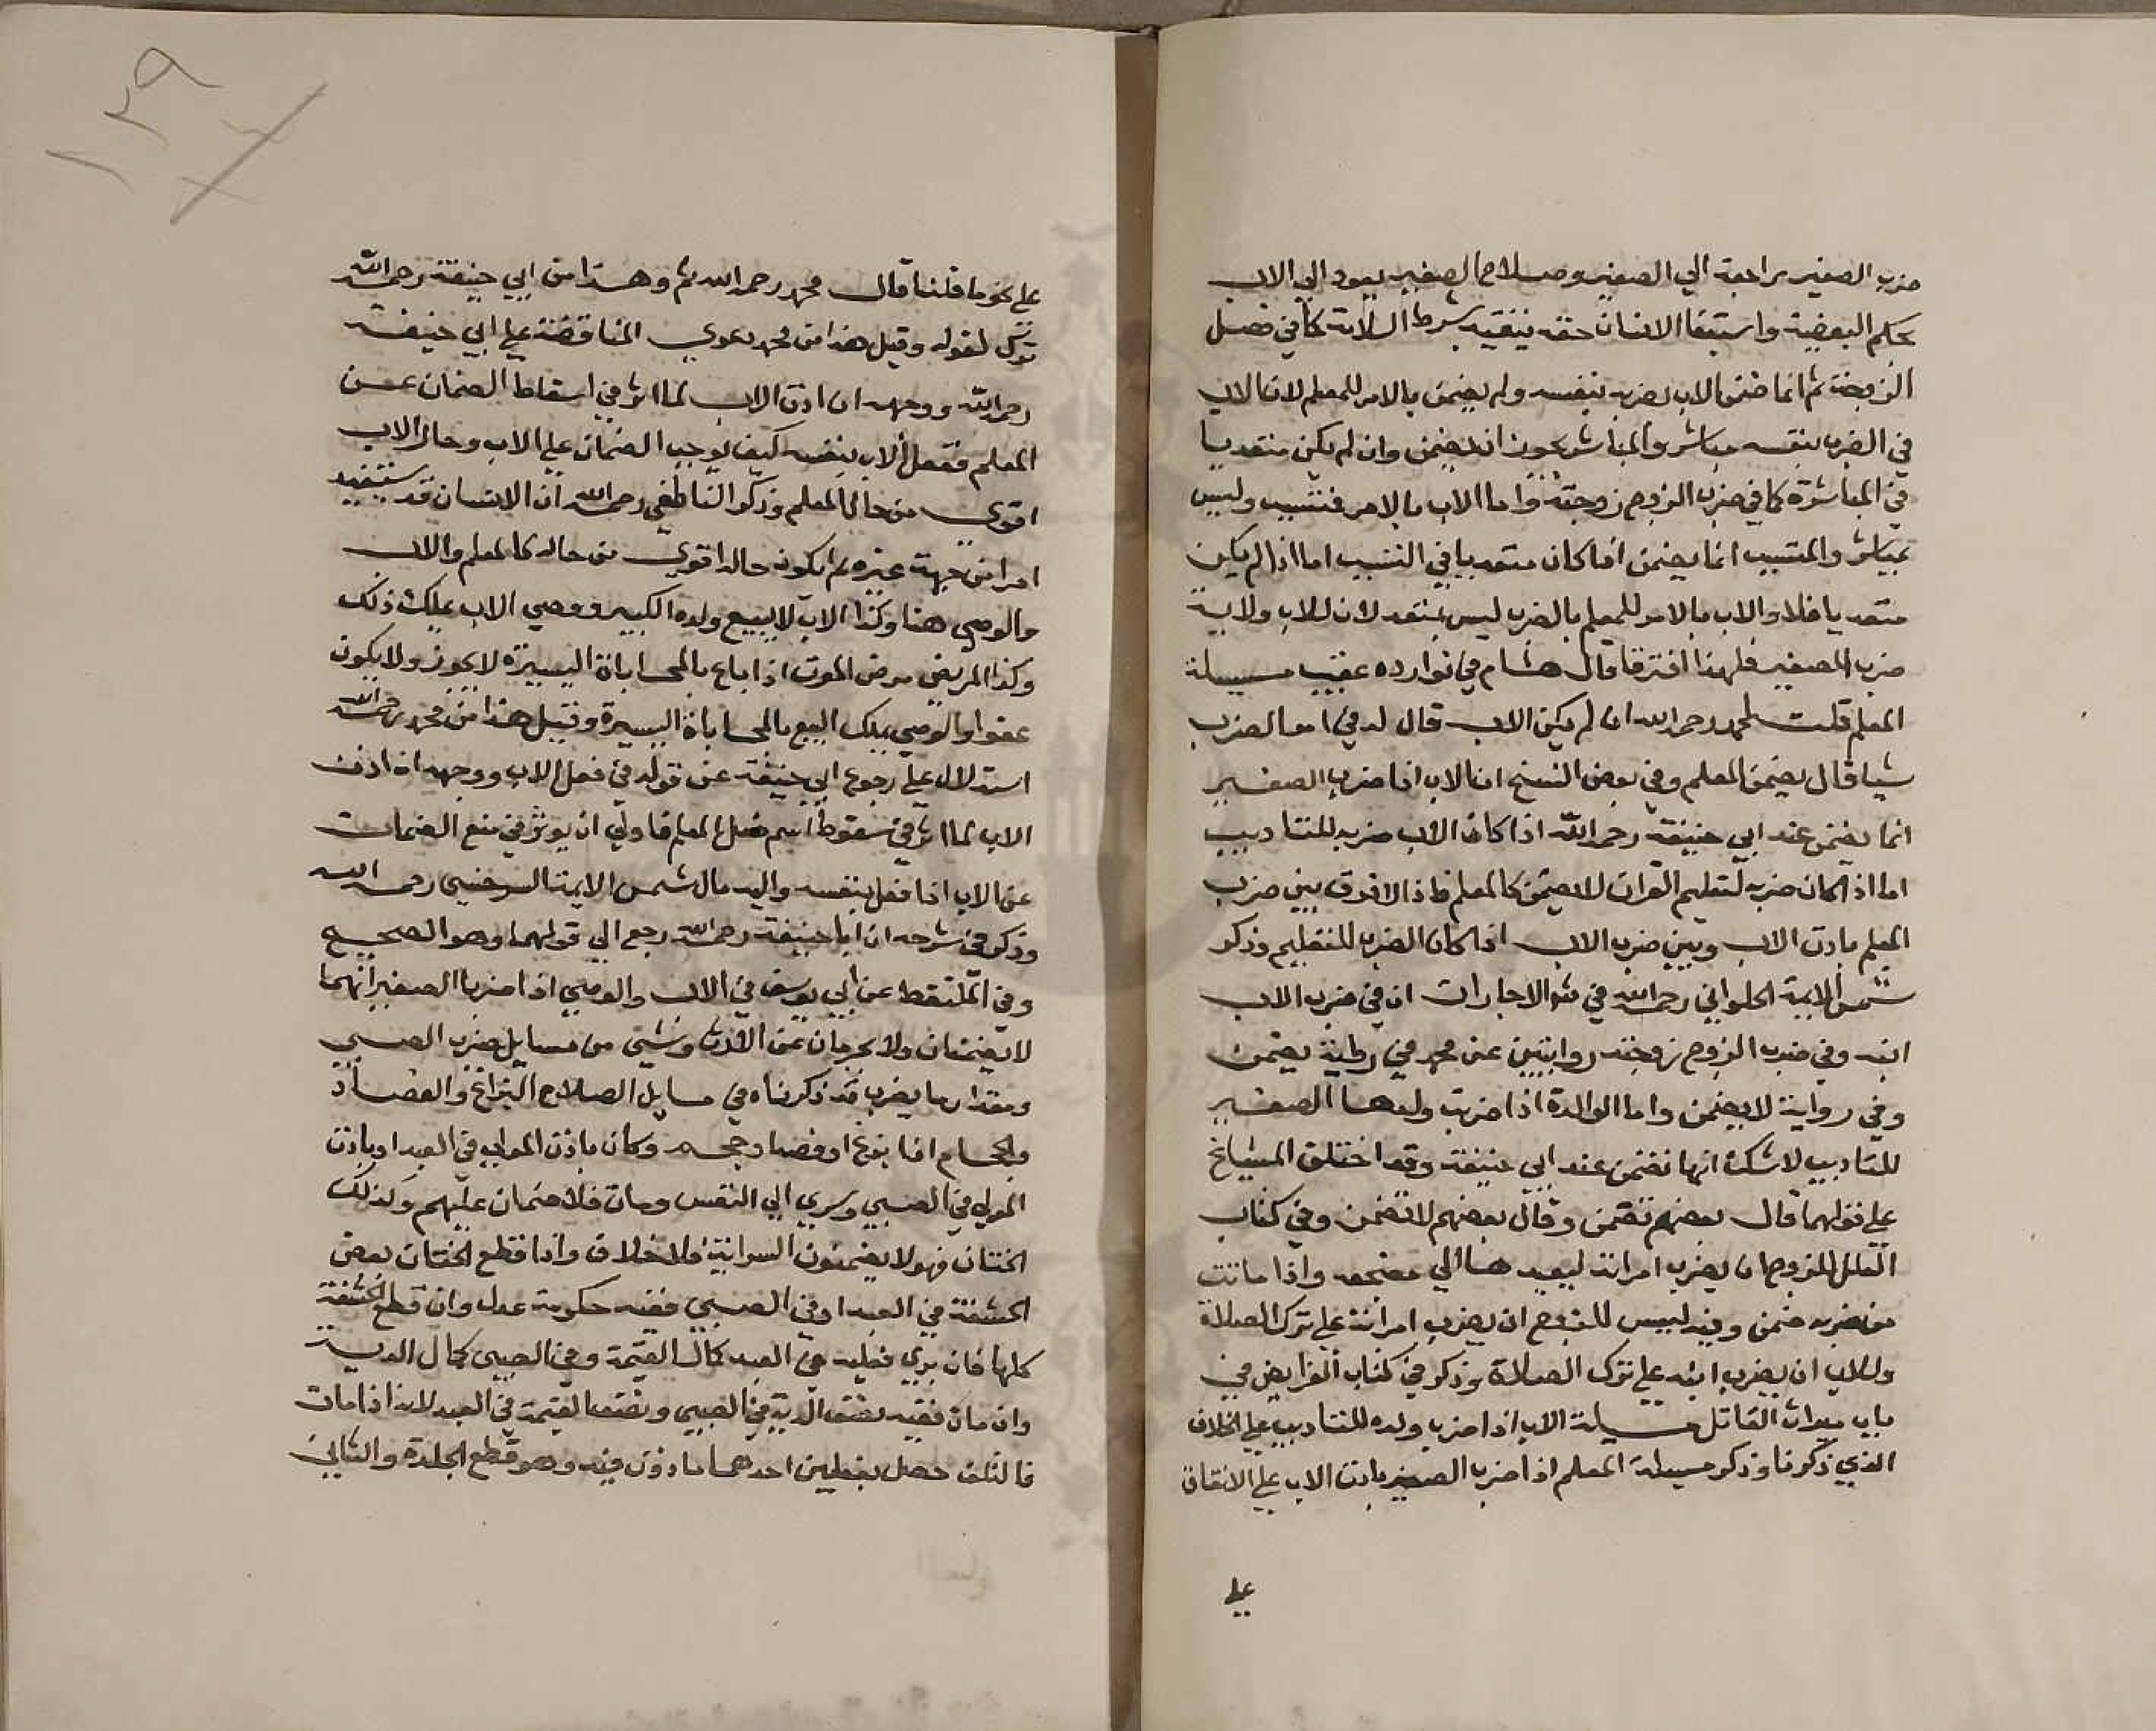 ضرب الصغير راجعة الي الصغير وصلاح الصغير يعود الي الاب
بحكم البعضية واستيفا الانسان حقه بنفسه بشرط السلامة كما في فصل
الزوجة ثم انما ضمن الاب بضربه بنفسه ولم يضمن بالامر للمعلم لان الاب
في الضرب بنفسه مباشر والمباشر يجوز ان يضمن وان لم يكن متعديا
في المباشرة كما في ضرب الزوج زوجته واما الاب بالامر فتسبب وليس
بمباشر والمتسبب انما يضمن اذا كان متعديا في التسبب اما اذا لم يكن
متعديا فلا والاب بالامر للمعلم بالضرب ليس بمتعد لان للاب ولاية
ضرب الصغير فلهذا افترقا قال هشام في نوادره عقيب مسيلة
المعلم قلت لمحمد رحمه الله ان لم يكن الاب قال له في امر الضرب
شيا قال يضمن المعلم وفي بعض النسخ ان الاب اذا ضرب الصغير
انما يضمن عند ابي حنيفة رحمه الله اذا كان الاب ضربه للتاديب
اما اذا كان ضربه لتعليم القران لا يضمن كالمعلم فاذا لا فرق بين ضرب
المعلم باذن الاب وبين ضرب الاب اذا كان الضرب للتعليم وذكر
شمس الايمة الحلواني رحمه الله في شر الاجارات ان في ضرب الاب
ابنه وفي ضرب الزوج زوجته روايتين عن محمد في رواية يضمن
وفي رواية لا يضمن واما الوالدة اذا ضربت ولدها الصغير
للتاديب لا شك انها تضمن عند ابي حنيفة وقد اختلف المشايخ
علي قولهما قال بعضهم تضمن وقال بعضهم لا تضمن وفي كتاب
العلل للزوج ان يضرب امراته ليعيدها الي مضجعه واذا ماتت
من ضربه ضمن وفيه ليس للزوج ان يضرب امراته علي ترك الصلاة
وللاب ان يضرب ابنه علي ترك الصلاة وذكر في كتاب الفرايض في
باب ميراث القاتل مسيلة الاب اذا ضرب ولده للتاديب علي الخلاف
الذي ذكرنا وذكر مسيلة المعلم اذا ضرب الصغير باذن الاب علي الاتفاق
علي
١٣٩
علي نحو ما قلنا قال محمد رحمه الله ثم وهذا من ابي حنيفة رحمه الله
ترك لقوله وقيل هذا من محمد دعوي المناقضة علي ابي حنيفة
رحمه الله ووجهه ان اذن الاب لما اثر في اسقاط الضمان عن
المعلم ففعل الاب بنفسه كيف يوجب الضمان علي الاب وحال الاب
اقوي من حال المعلم وذكر الناطفي رحمه الله ان الانسان قد يستفيد
امرا من جهة غيره ثم يكون حاله اقوي من حاله كالمعلم والاب
والوصي هنا وكذا الاب لا يبيع ولده الكبير ووصي الاب يملك ذلك
وكذا المريض مرض الموت اذا باع بالمحاباة اليسيرة لا يجوز ولا يكون
عفوا والوصي يملك البيع بالمحاباة اليسيرة وقيل هذا من محمد رحمه الله
استدلال علي رجوع ابي حنيفة عن قوله في فعل الاب ووجهه ان اذن
الاب لما اثر في سقوط اسم فعل المعلم فاولي ان يوثر في منع الضمان
عن الاب اذا فعل بنفسه واليه مال شمس الايمة السرخسي رحمه الله
وذكر في شرحه ان ابا حنيفة رحمه الله رجع الي قولهما وهو الصحيح
وفي الملتقط عن ابي يوسف في الاب والوصي اذا ضربا الصغير انهما
لا يضمنان ولا يحرمان عن الارث وشي من مسايل ضرب الصبي
ومقدار ما يضرب قد ذكرناه في مسايل الصلاح البزاغ والفصاد
والحجام اذا بزغ او فصد او حجم وكان باذن المولي في العبد او باذن
المولي في الصبي وسري الي النفس ومات فلا ضمان عليهم وكذلك
الختان فهو لا يضمنون السراية بلا خلاف واذا قطع الختان بعض
الحشفة في العبد او في الصبي ففيه حكومة عدل وان قطع الحشفة
كلها فان بري فعليه في العبد كمال القيمة وفي الصبي كمال الدية
وان مات ففيه نصف الدية في الصبي ونصف القيمة في العبد لانه اذا مات
فالتلف حصل بفعلين احدهما ماذون فيه وهو قطع الجلدة والثاني